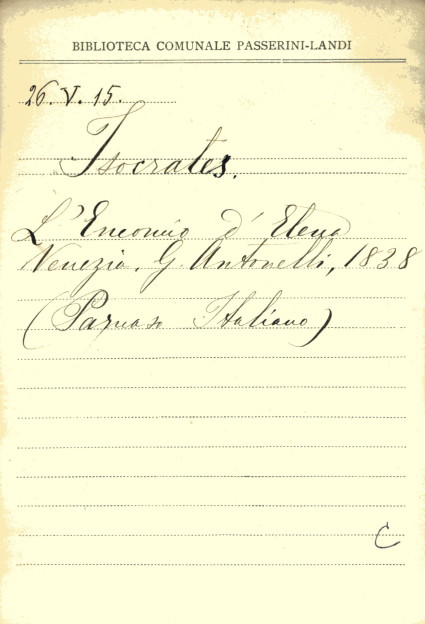 BIBLIOTECA COMUNALE PASSERINI-LANDI
26.V.15.
Isocrates.
L'Encomio d'Elena
Venezia. G. Antonelli, 1838
(Parnaso Italiano)
C